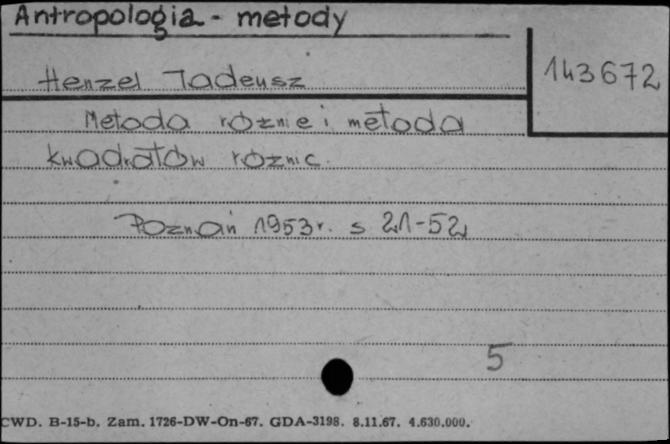 Antropologia - metody
Henzel Tadeusz
143672
Metoda różnie i metoda
kwadratów róznic.
Poznań 1953r. s 21-52
5
CWD. B-15-b. Zam. 1726-DW-On-67. GDA-3198. 8.11.67. 4.630.000.